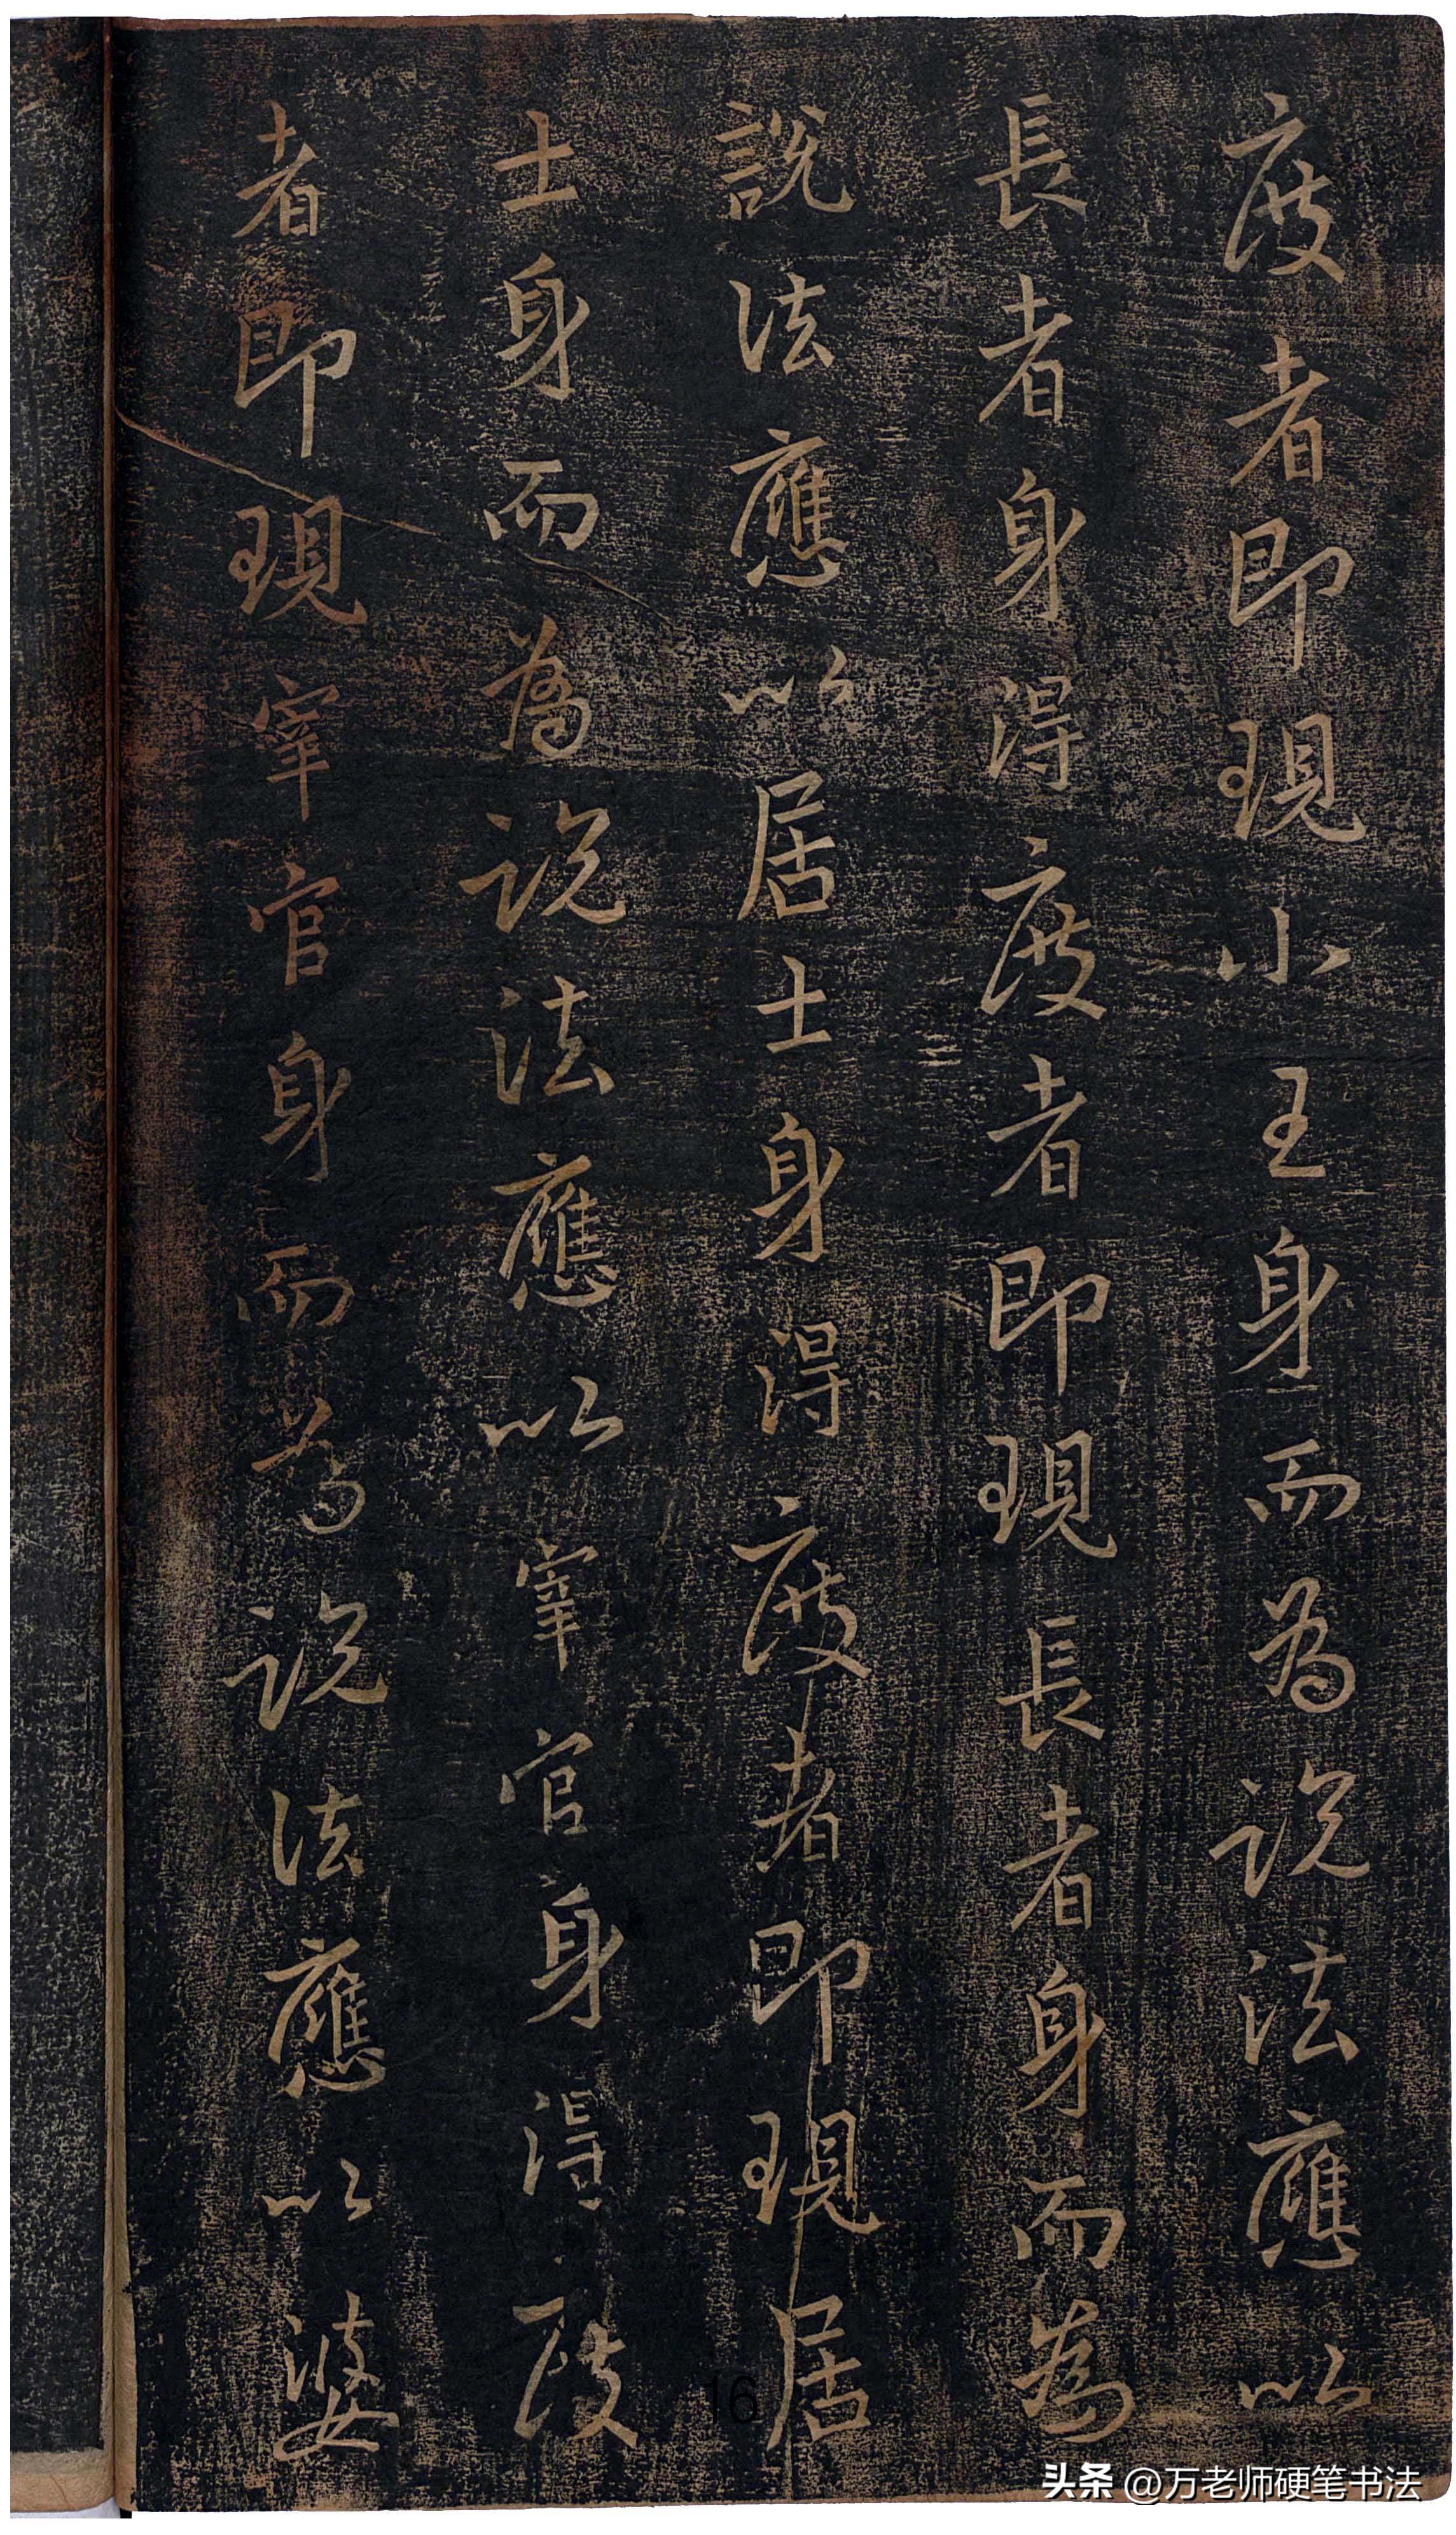 度者即現小王身而為説法應以
長者身得度者即現長者身而為
説法應以居士身得度者即現居
士身而為説法應以宰官身得度
者即現宰官身而為説法應以婆
16
头条 @万老师硬笔书法